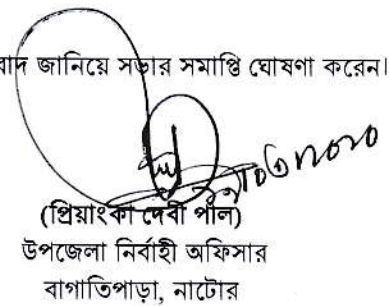 বাদ জানিয়ে সভার সমাপ্তি ঘোষণা করেন।
(প্রিয়াংকা দেবী পাল)
উপজেলা নির্বাহী অফিসার
বাগাতিপাড়া, নাটোর